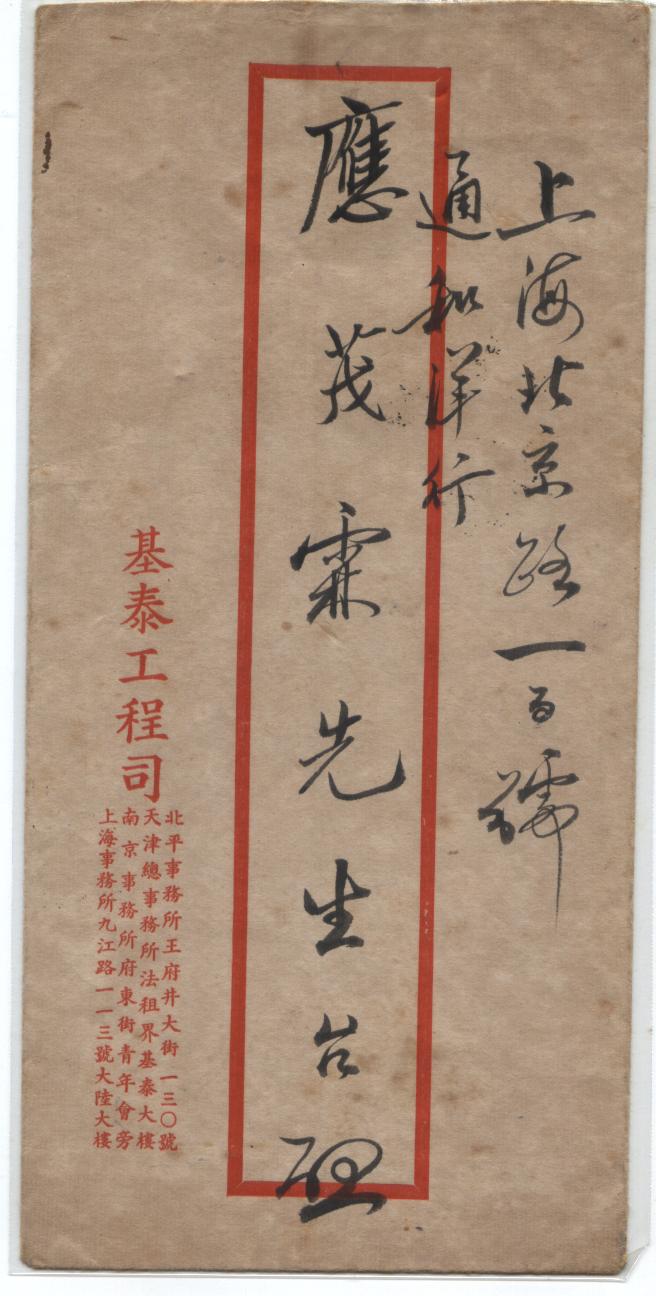 上海北京路一百號
通和洋行
應茂霖先生台
基泰工程司
北平事務所王府井大街一三〇號
天津總事務所法租界基泰大樓
南京事務所府東街青年會旁
上海事務所九江路一一三號大陸大樓